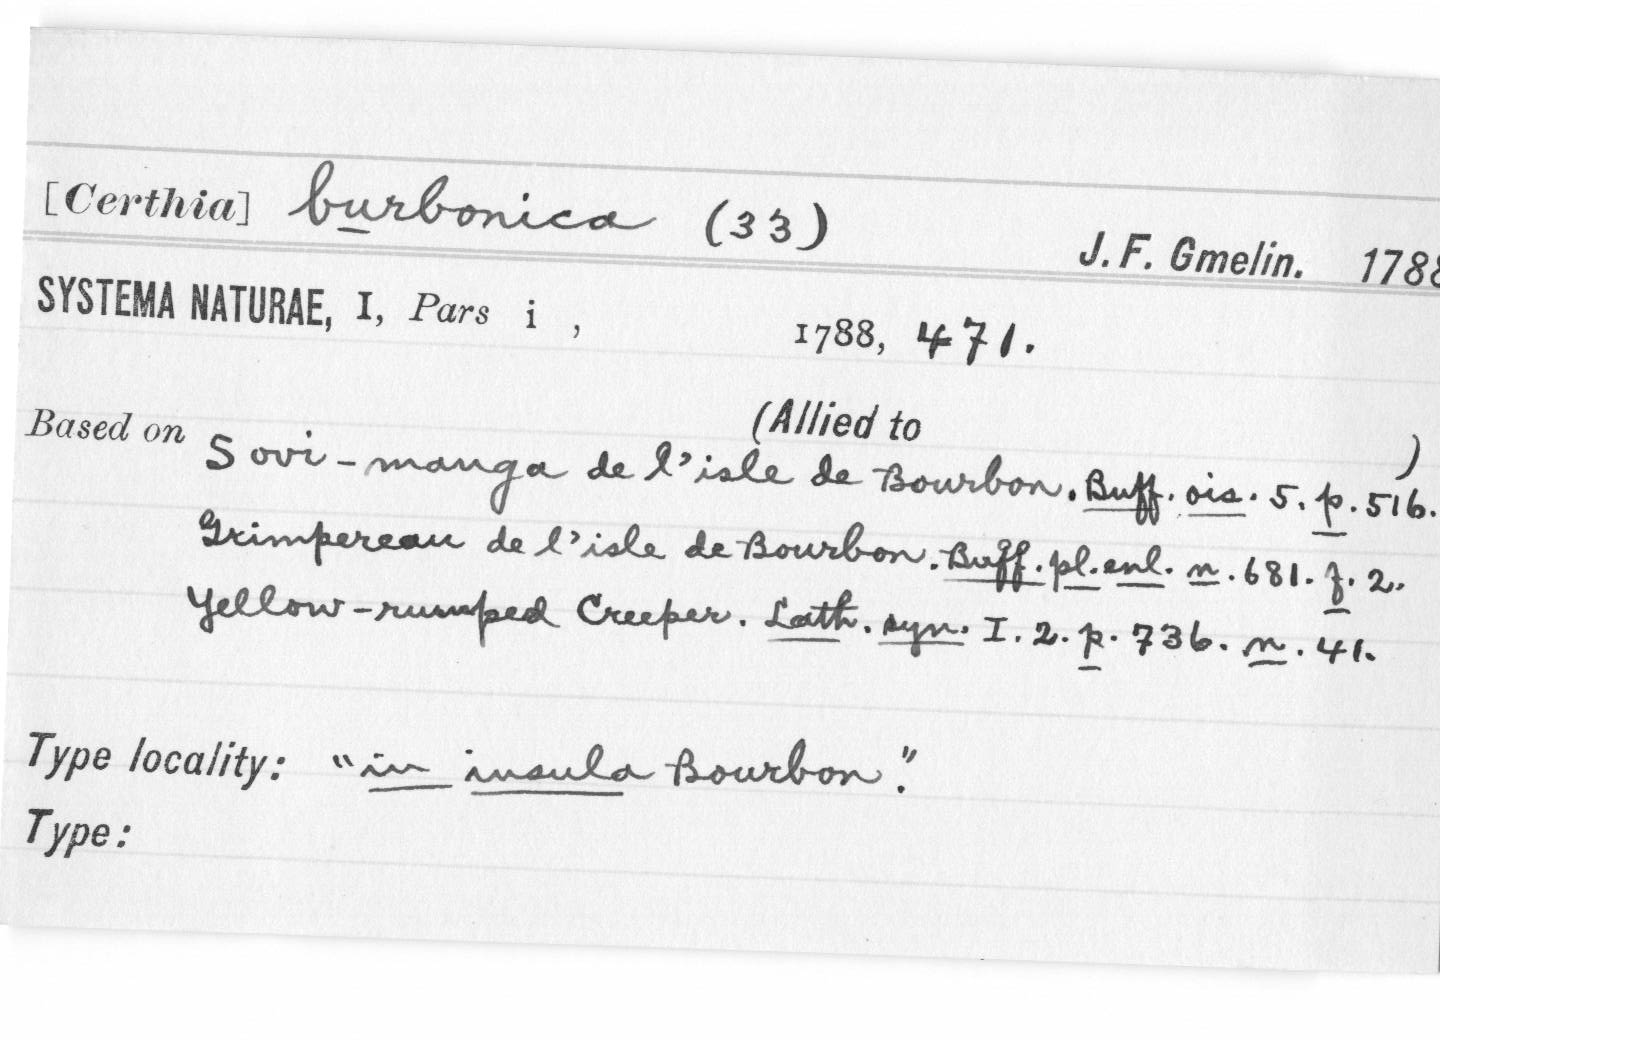 [Certhia] burbonica (33)
J. F. Gmelin. 1788
SYSTEMA NATURAE, I, Pars i , 1788, 471.
(Allied to )
Based on Sovi-manga de l'isle de Bourbon. Buff. ois. 5. p. 516.
Grimpereau de l'isle de Bourbon. Buff. pl. enl. n. 681. f. 2.
Yellow-rumped Creeper. Lath. syn. I. 2. p. 736. n. 41.
Type locality: "in insula Bourbon".
Type: